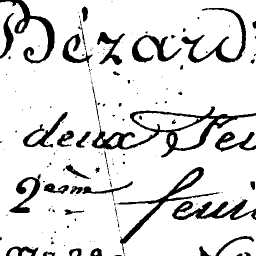 Bézard
deux Feu
2ème feui